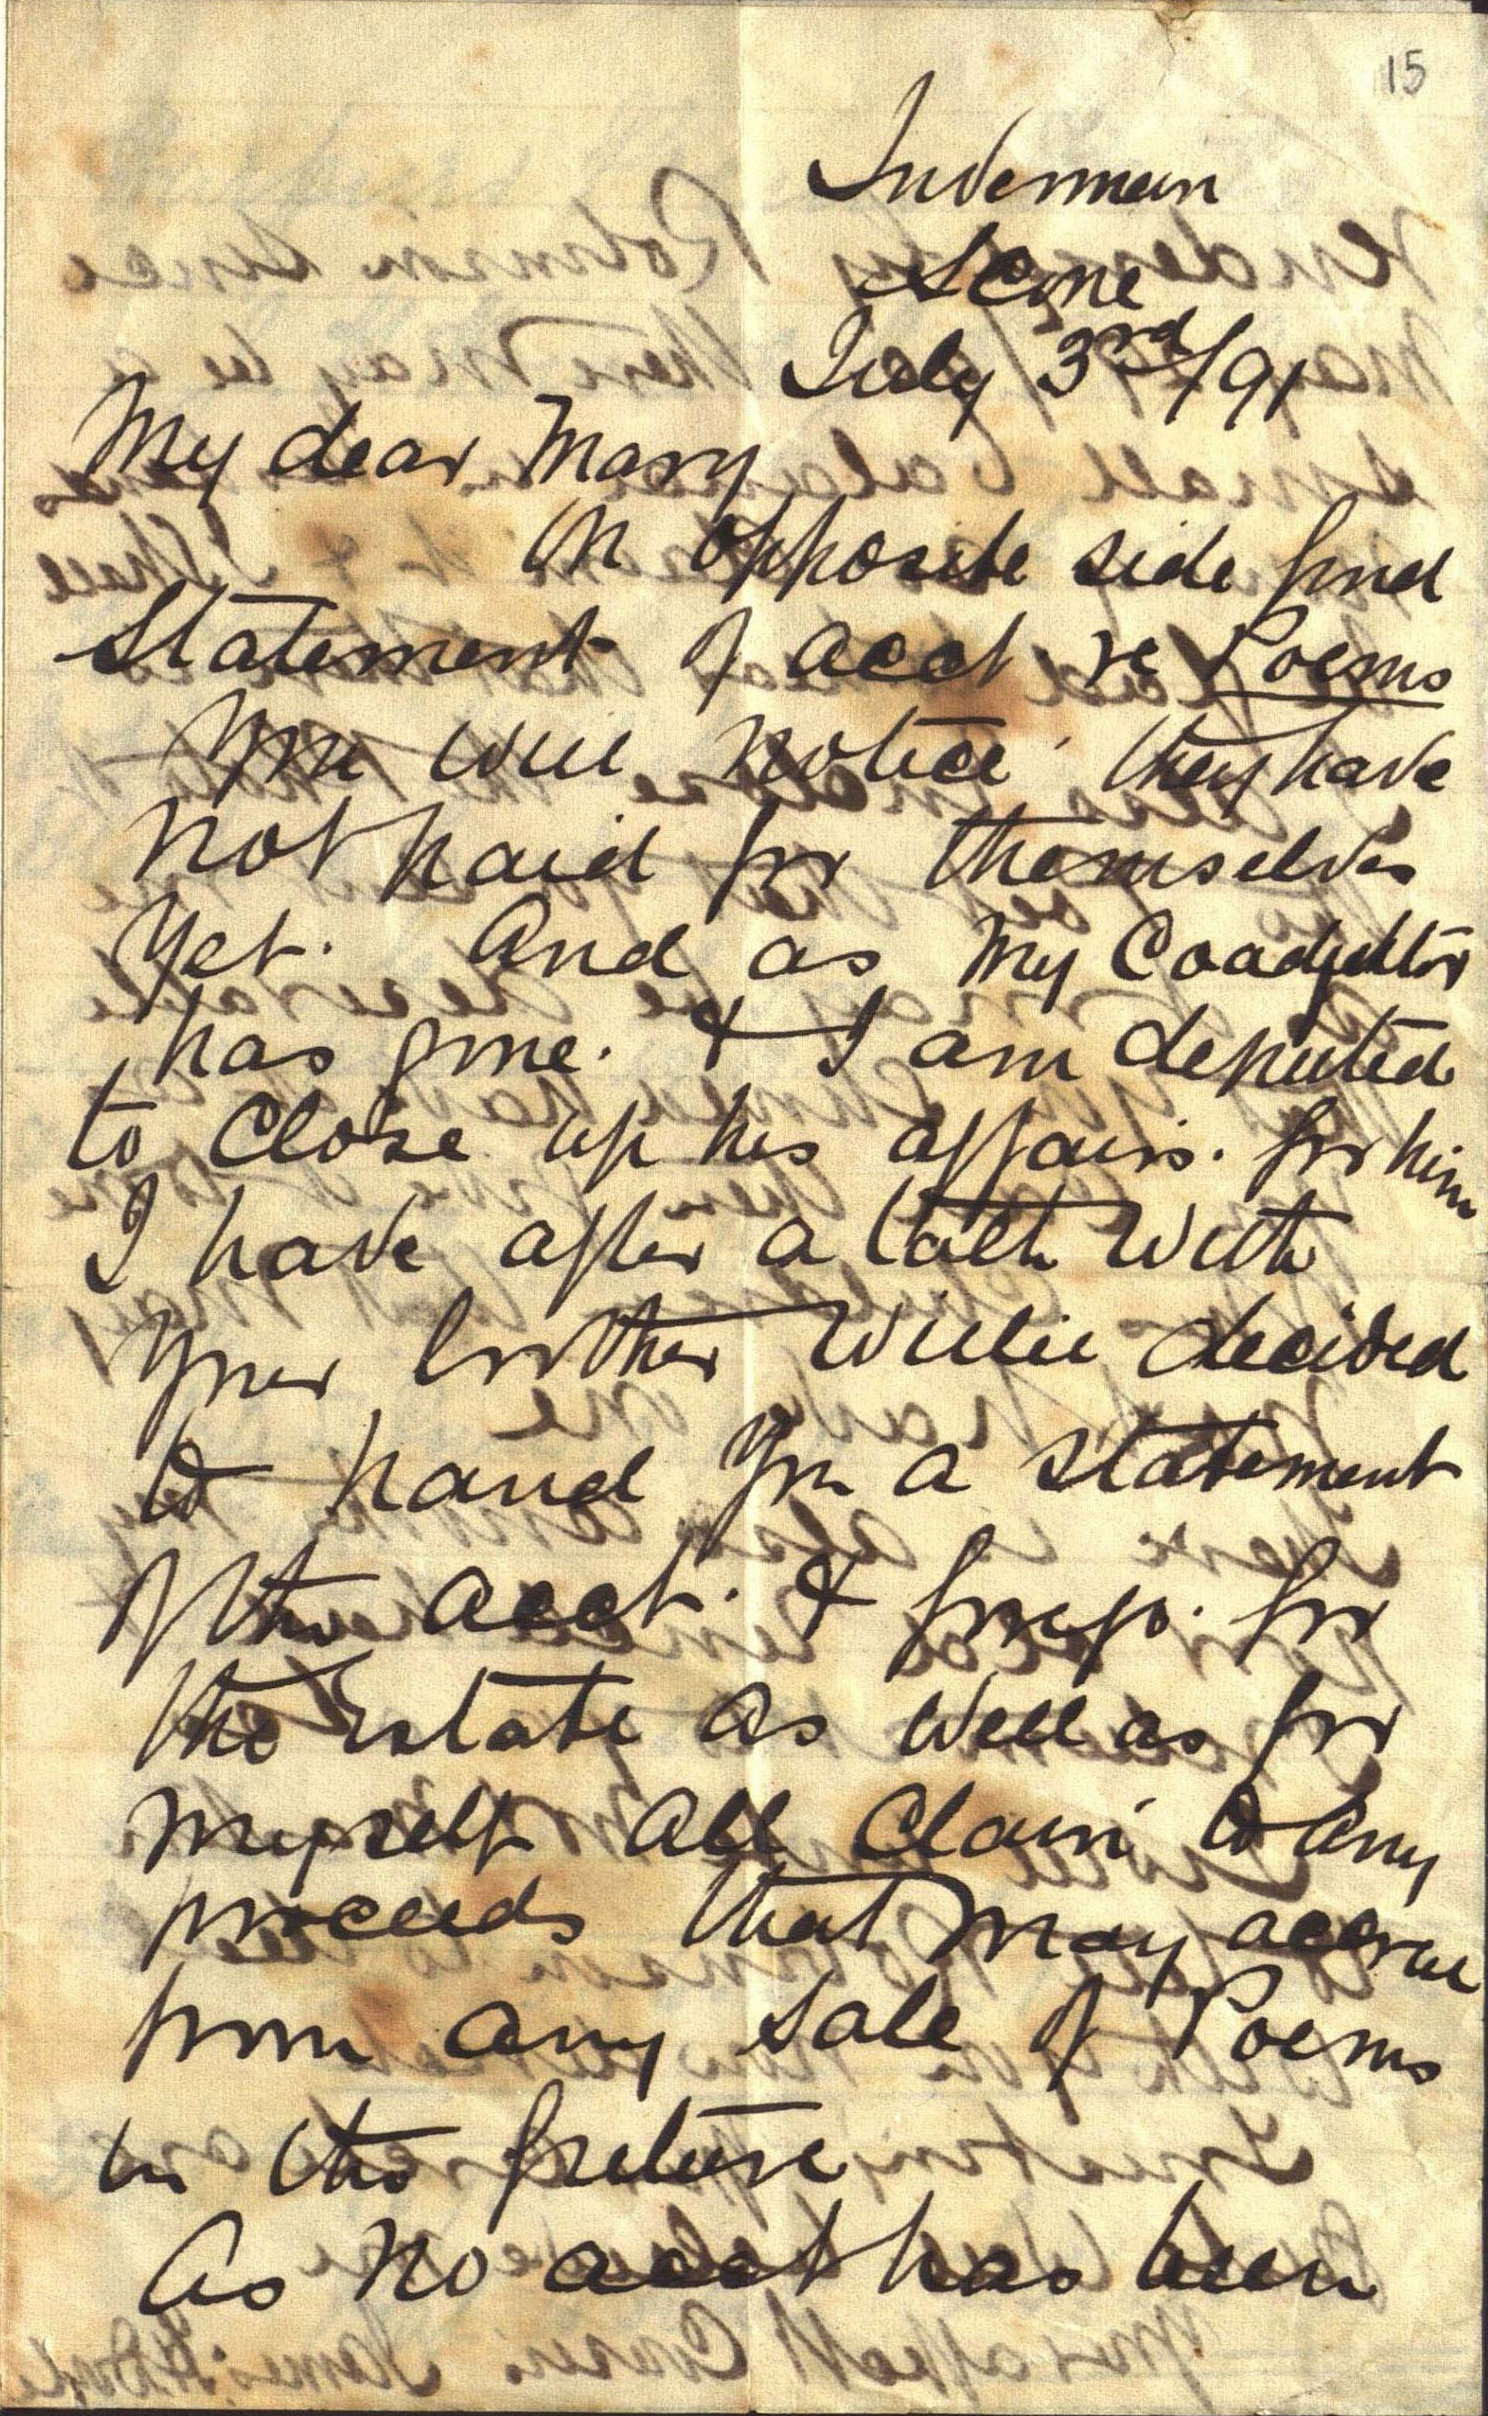 15
Invermein
Scone
July 3rd/91
My dear Mary
On opposite side find
Statement of acct re Poems
You will notice they have
not paid for themselves
yet. And as my Coadjuttor
has gone. & I am deputed
to Close up his affairs. for him
I have after a talk with
Your brother Willie decided
to hand You a statement
of the acct. & forego. for
the estate as well as for
myself all Claim to any
proceeds that may accrue
from any sale of Poems
in the future
As no acct has been